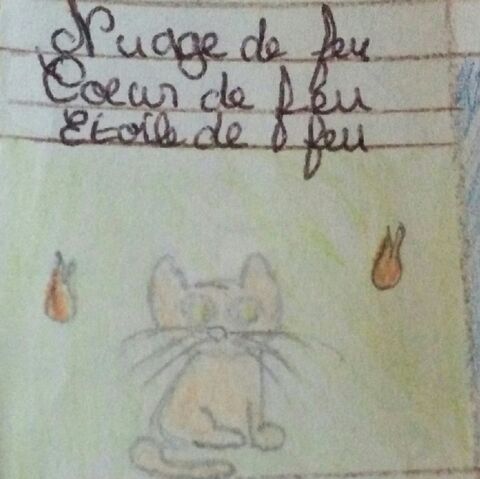 Nuage de feu
Coeur de feu
Etoile de feu